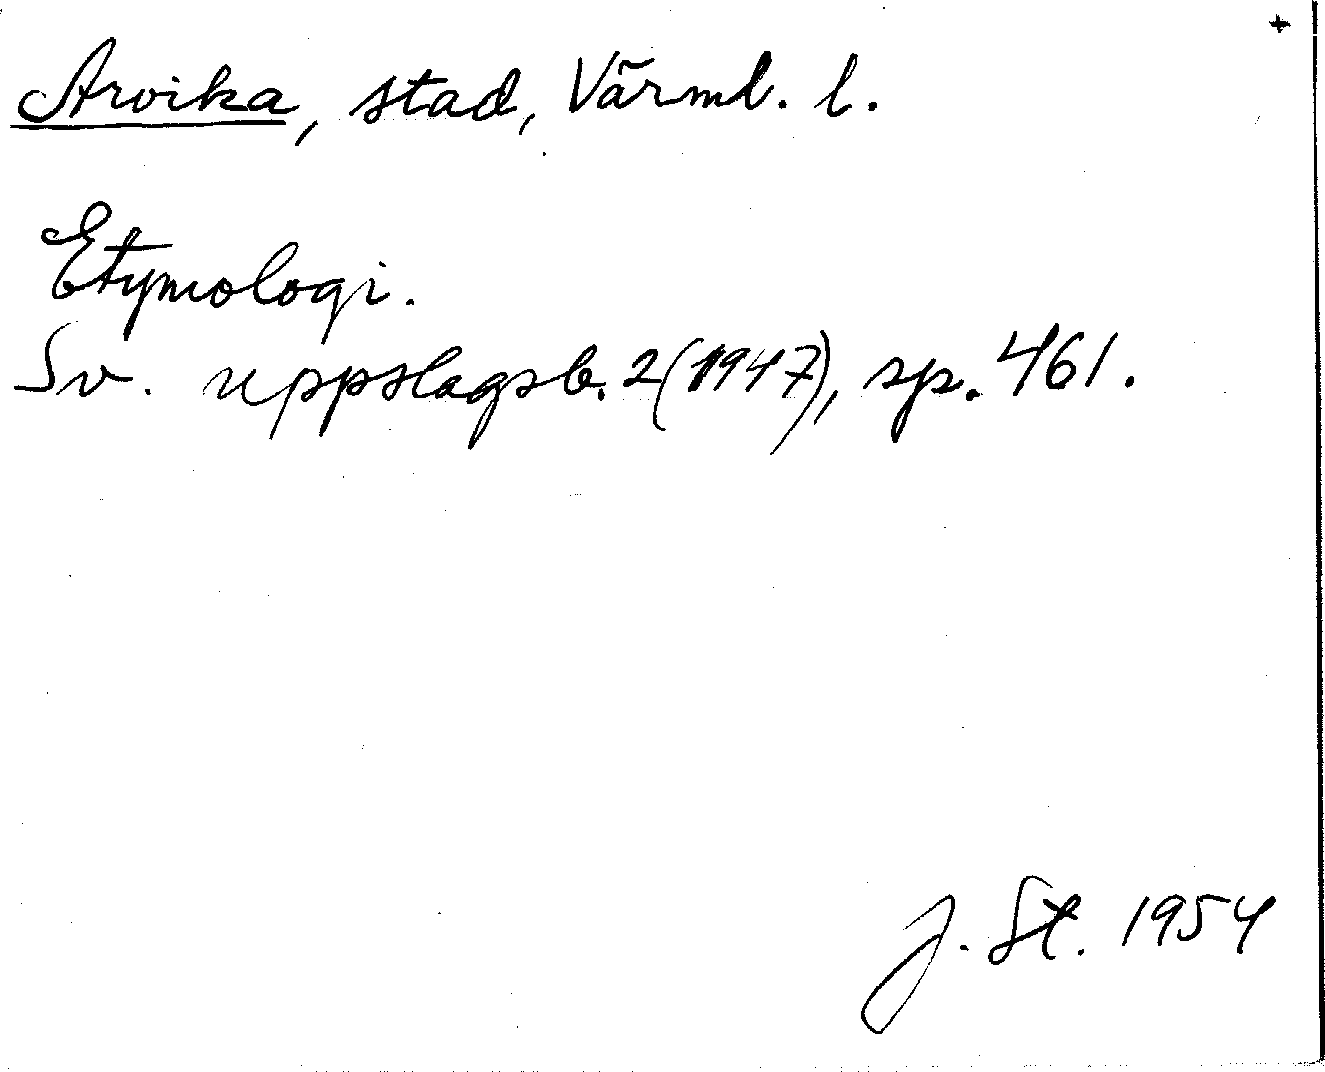 +
Arvika, stad, Värml. l.
Etymologi.
Sv. uppslagsb. 2(1947), sp. 461.
J. St. 1954